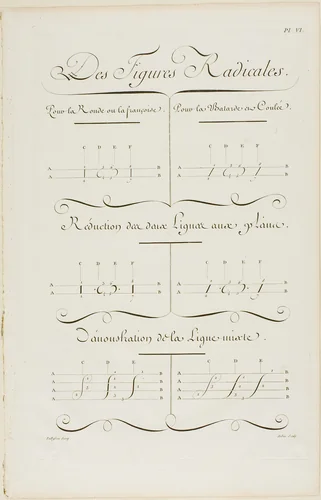 Pl. VI.
Des Figures Radicales.
Pour la Ronde ou la françoise.
Pour la Batarde et Coulée.
C D E F
C D E F
A B
A B
A B
A B
Réduction des deux Lignes aux
C D E F
C D E F
A B
A B
A B
A B
Démonstration de la Ligne mixte.
C D E
C D E
A B
A B
A B
A B
A B
A B
A B
A B